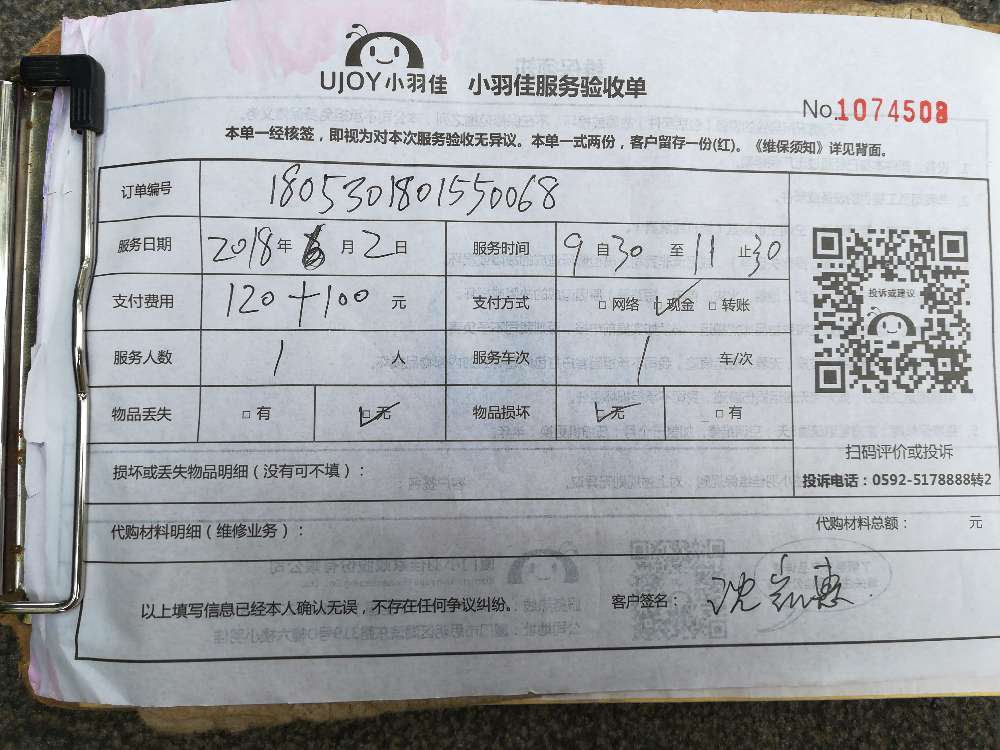 UJOY小羽佳 小羽佳服务验收单
No.1074508
本单一经核签，即视为对本次服务验收无异议。本单一式两份，客户留存一份(红)。《维保须知》详见背面。
订单编号 1805301801550068
服务日期 2018年6月2日 服务时间 9自30至11止30
支付费用 120+100元 支付方式 □网络 ☑现金 □转账
服务人数 1人 服务车次 1车/次
物品丢失 □有 ☑无 物品损坏 ☑无 □有
投诉或建议
扫码评价或投诉
投诉电话：0592-5178888转2
损坏或丢失物品明细（没有可不填）：
代购材料明细（维修业务）： 代购材料总额： 元
以上填写信息已经本人确认无误，不存在任何争议纠纷。 客户签名：沈 惠